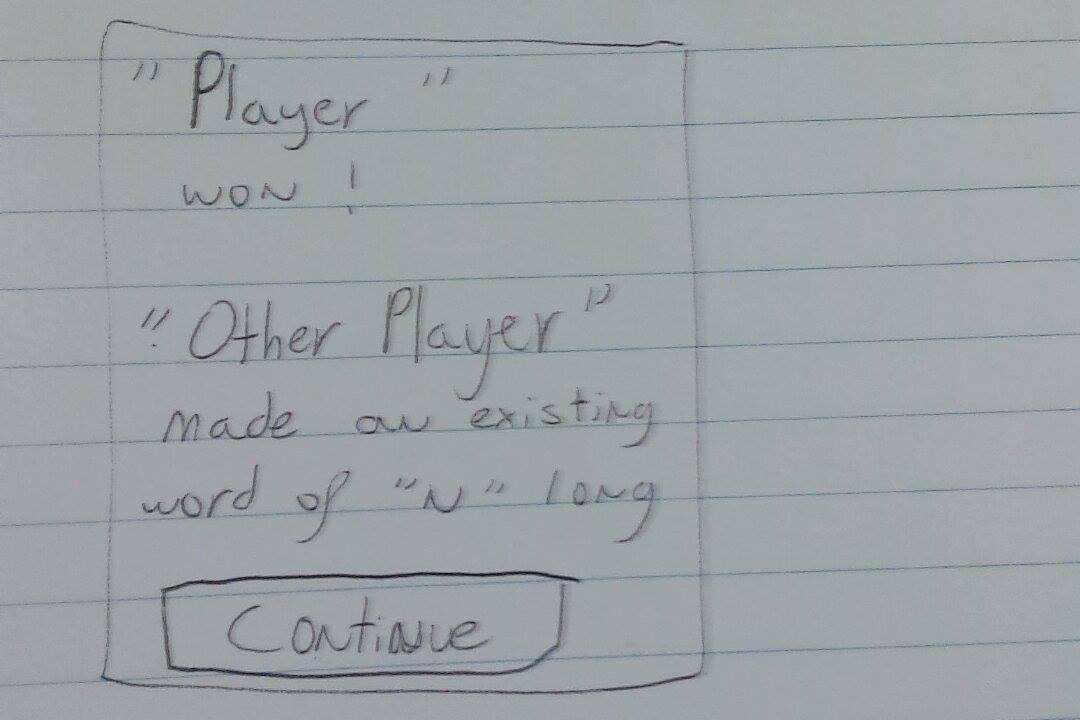 "Player"
won!
"Other Player"
made an existing
word of "N" long
Continue